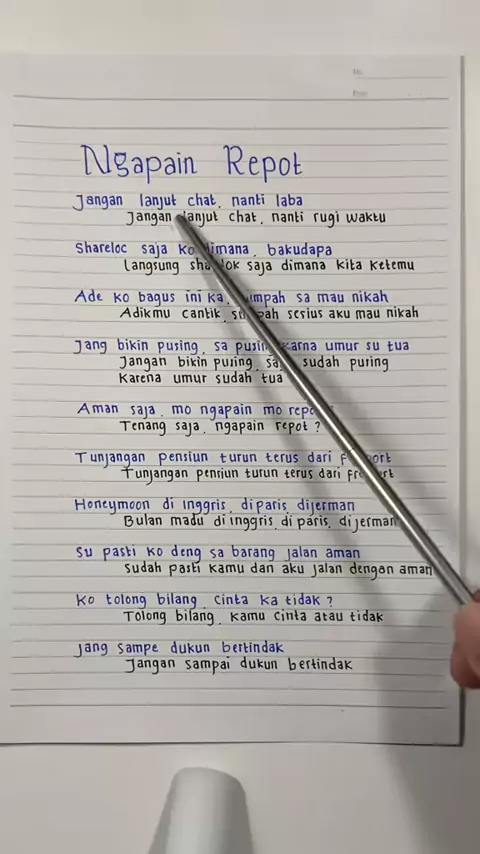 Ngapain Repot
Jangan lanjut chat, nanti laba
Jangan lanjut chat, nanti rugi waktu
Shareloc saja ko dimana, bakudapa
Langsung sharlok saja dimana kita ketemu
Ade ko bagus ini ka, sumpah sa mau nikah
Adikmu cantik, sumpah serius aku mau nikah
Jang bikin pusing, sa pusing karna umur su tua
Jangan bikin pusing, saya sudah pusing
Karena umur sudah tua
Aman saja, mo ngapain mo repot
Tenang saja, ngapain repot ?
Tunjangan pensiun turun terus dari freeport
Tunjangan pensiun turun terus dari freeport
Honeymoon di inggris, di paris, dijerman
Bulan madu di inggris, di paris, dijerman
Su pasti ko deng sa barang jalan aman
Sudah pasti kamu dan aku jalan dengan aman
Ko tolong bilang, cinta ka tidak ?
Tolong bilang, kamu cinta atau tidak
Jang sampe dukun bertindak
Jangan sampai dukun bertindak